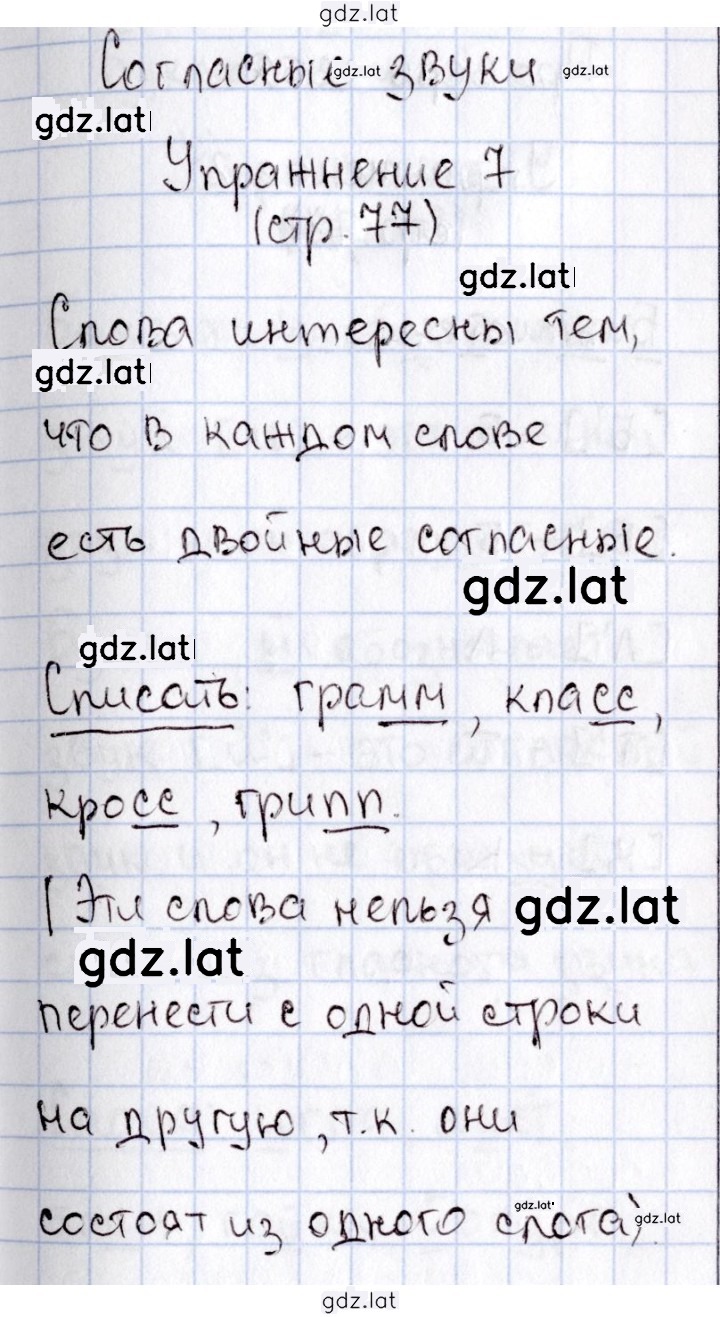 gdz.lat
Согласные gdz.lat звуки gdz.lat
gdz.lat
Упражнение 7
(стр. 77)
gdz.lat
Слова интересны тем,
gdz.lat
что в каждом слове
есть двойные согласные.
gdz.lat
gdz.lat
Списать: грамм, класс,
кросс, грипп.
(Эти слова нельзя gdz.lat
gdz.lat
перенести с одной строки
на другую, т.к. они
состоят из одного слога) gdz.lat gdz.lat
gdz.lat